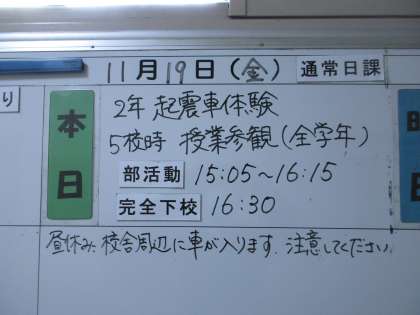 11月19日(金) 通常日課
り
本日
2年 起震車体験
5校時 授業参観(全学年)
部活動 15:05~16:15
完全下校 16:30
昼休み 校舎周辺に車が入ります. 注意してください.